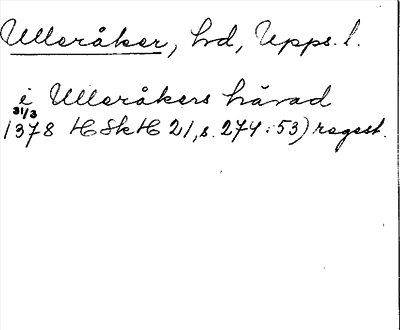 Ulleråker, hd, Upps. l.
i Ulleråkers härad
31/3
1378 HSkH 21, s. 274:53) regest.